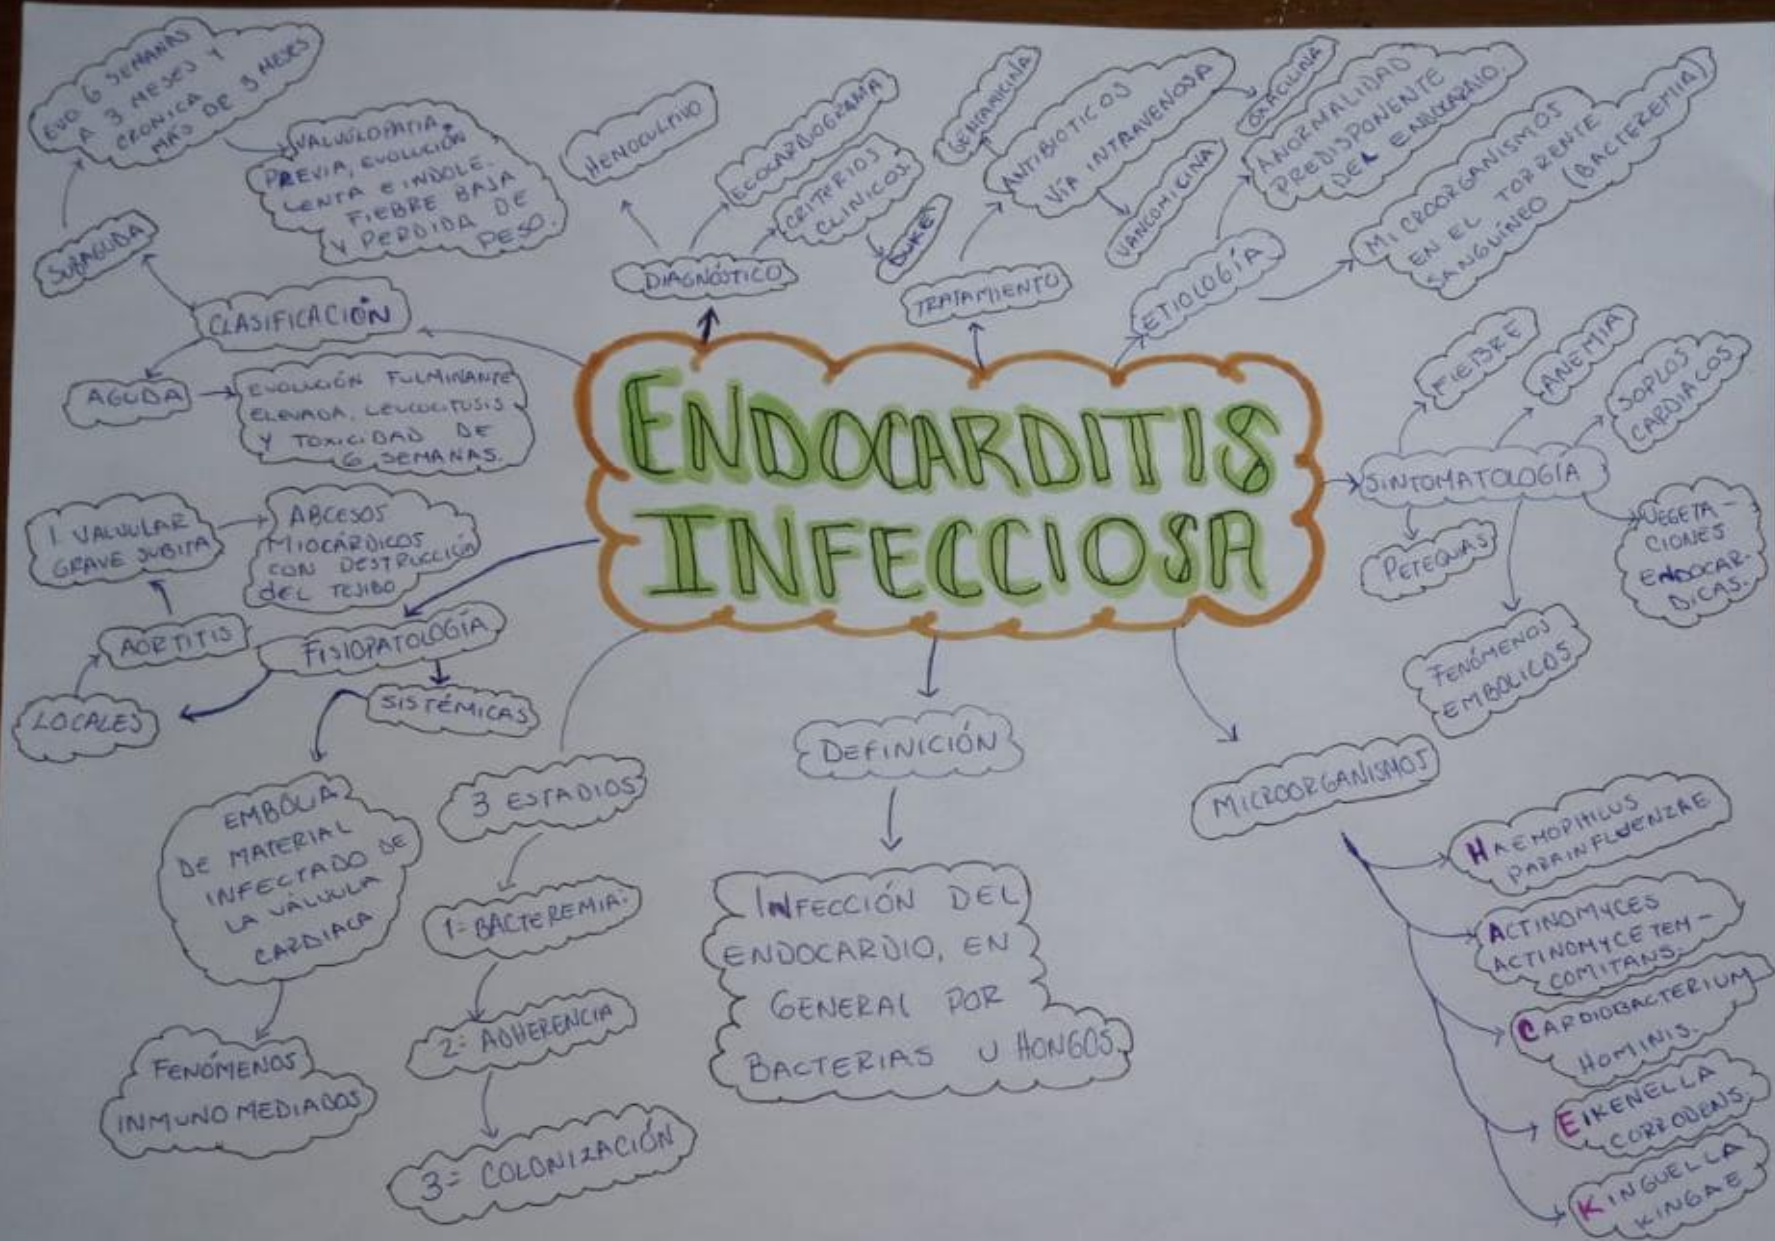 ENDOCARDITIS
INFECCIOSA
CLASIFICACIÓN
SUBAGUDA
EVO 6 SEMANAS
A 3 MESES Y
CRONICA
MÁS DE 3 MESES
VALVULOPATIA
PREVIA, EVOLUCIÓN
LENTA E INDOLE.
FIEBRE BAJA
Y PERDIDA DE
PESO.
AGUDA
EVOLUCIÓN FULMINANTE
ELEVADA, LEUCOCITOSIS
Y TOXICIDAD DE
6 SEMANAS.
DIAGNÓSTICO
HEMOCULTIVO
ECOCARDIOGRAMA
CRITERIOS
CLINICOS.
DUKE
TRATAMIENTO
ANTIBIOTICOS
VÍA INTRAVENOSA
GENTAMICINA
VANCOMICINA
OXACILINA
ETIOLOGÍA
ANORMALIDAD
PREDISPONENTE
DEL ENDOCARDIO.
MICROORGANISMOS
EN EL TORRENTE
SANGUÍNEO (BACTEREMIA)
SINTOMATOLOGÍA
FIEBRE
ANEMIA
SOPLOS
CARDIACOS
VEGETA-
CIONES
ENDOCAR-
DICAS.
PETEQUIAS
FENÓMENOS
EMBOLICOS
FISIOPATOLOGÍA
LOCALES
AORTITIS
I VALVULAR
GRAVE SUBITA
ABCESOS
MIOCÁRDICOS
CON DESTRUCCIÓN
DEL TEJIDO
SISTÉMICAS
EMBOLIA
DE MATERIAL
INFECTADO DE
LA VÁLVULA
CARDIACA
FENÓMENOS
INMUNO MEDIADOS
3 ESTADIOS
1= BACTEREMIA.
2= ADHERENCIA
3= COLONIZACIÓN
DEFINICIÓN
INFECCIÓN DEL
ENDOCARDIO, EN
GENERAL POR
BACTERIAS U HONGOS.
MICROORGANISMOS
HAEMOPHILUS
PARAINFLUENZAE
ACTINOMYCES
ACTINOMYCETEM-
COMITANS.
CARDIOBACTERIUM
HOMINIS.
EIKENELLA
CORRODENS.
KINGUELLA
KINGAE